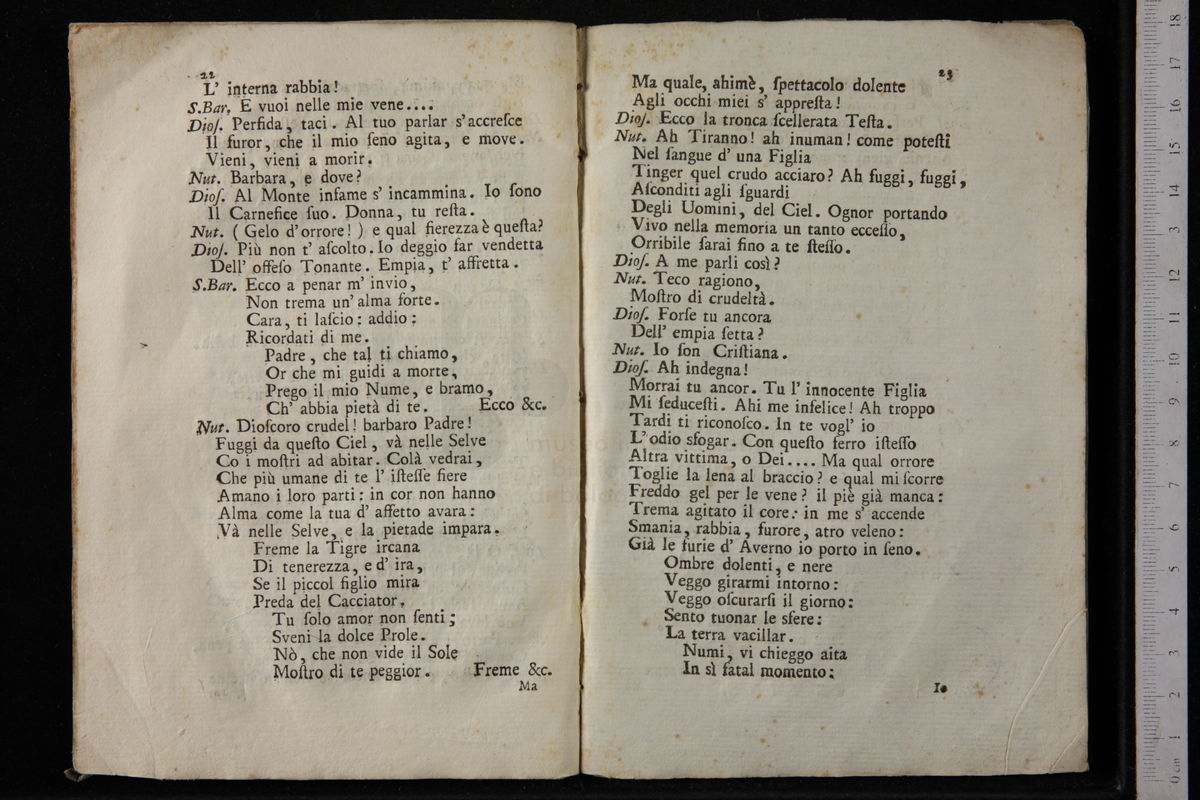 22
L' interna rabbia!
S.Bar. E vuoi nelle mie vene....
Dioſ. Perfida, taci. Al tuo parlar s'accreſce
Il furor, che il mio ſeno agita, e move.
Vieni, vieni a morir.
Nut. Barbara, e dove?
Dioſ. Al Monte infame s' incammina. Io ſono
Il Carnefice ſuo. Donna, tu reſta.
Nut. (Gelo d'orrore!) e qual fierezza è queſta?
Dioſ. Più non t' aſcolto. Io deggio far vendetta
Dell' offeſo Tonante. Empia, t' affretta.
S.Bar. Ecco a penar m' invio,
Non trema un' alma forte.
Cara, ti laſcio: addio:
Ricordati di me.
Padre, che tal ti chiamo,
Or che mi guidi a morte,
Prego il mio Nume, e bramo,
Ch' abbia pietà di te. Ecco &c.
Nut. Dioſcoro crudel! barbaro Padre!
Fuggi da queſto Ciel, và nelle Selve
Co i moſtri ad abitar. Colà vedrai,
Che più umane di te l' iſteſſe fiere
Amano i loro parti: in cor non hanno
Alma come la tua d' affetto avara:
Và nelle Selve, e la pietade impara.
Freme la Tigre ircana
Di tenerezza, e d' ira,
Se il piccol figlio mira
Preda del Cacciator.
Tu ſolo amor non ſenti;
Sveni la dolce Prole.
Nò, che non vide il Sole
Moſtro di te peggior. Freme &c.
Ma
23
Ma quale, ahimè, ſpettacolo dolente
Agli occhi miei s' appreſta!
Dioſ. Ecco la tronca ſcellerata Teſta.
Nut. Ah Tiranno! ah inuman! come poteſti
Nel ſangue d' una Figlia
Tinger quel crudo acciaro? Ah fuggi, fuggi,
Aſconditi agli ſguardi
Degli Uomini, del Ciel. Ognor portando
Vivo nella memoria un tanto ecceſſo,
Orribile ſarai fino a te ſteſſo.
Dioſ. A me parli così?
Nut. Teco ragiono,
Moſtro di crudeltà.
Dioſ. Forſe tu ancora
Dell' empia ſetta?
Nut. Io ſon Criſtiana.
Dioſ. Ah indegna!
Morrai tu ancor. Tu l' innocente Figlia
Mi ſeduceſti. Ahi me infelice! Ah troppo
Tardi ti riconoſco. In te vogl' io
L' odio sfogar. Con queſto ferro iſteſſo
Altra vittima, o Dei.... Ma qual orrore
Toglie la lena al braccio? e qual mi ſcorre
Freddo gel per le vene? il piè già manca:
Trema agitato il core: in me s' accende
Smania, rabbia, furore, atro veleno:
Già le furie d' Averno io porto in ſeno.
Ombre dolenti, e nere
Veggo girarmi intorno:
Veggo oſcurarſi il giorno:
Sento tuonar le sfere:
La terra vacillar.
Numi, vi chieggo aita
In sì fatal momento:
Io